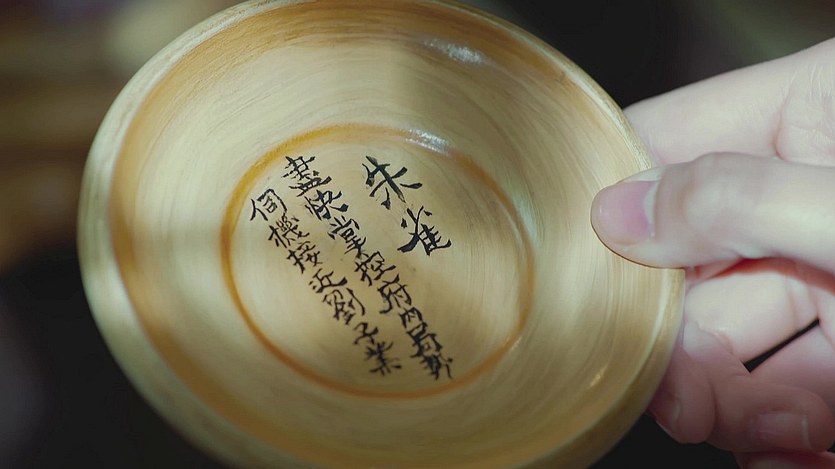 朱雀
盡快掌控府內局勢
伺機接近劉子業